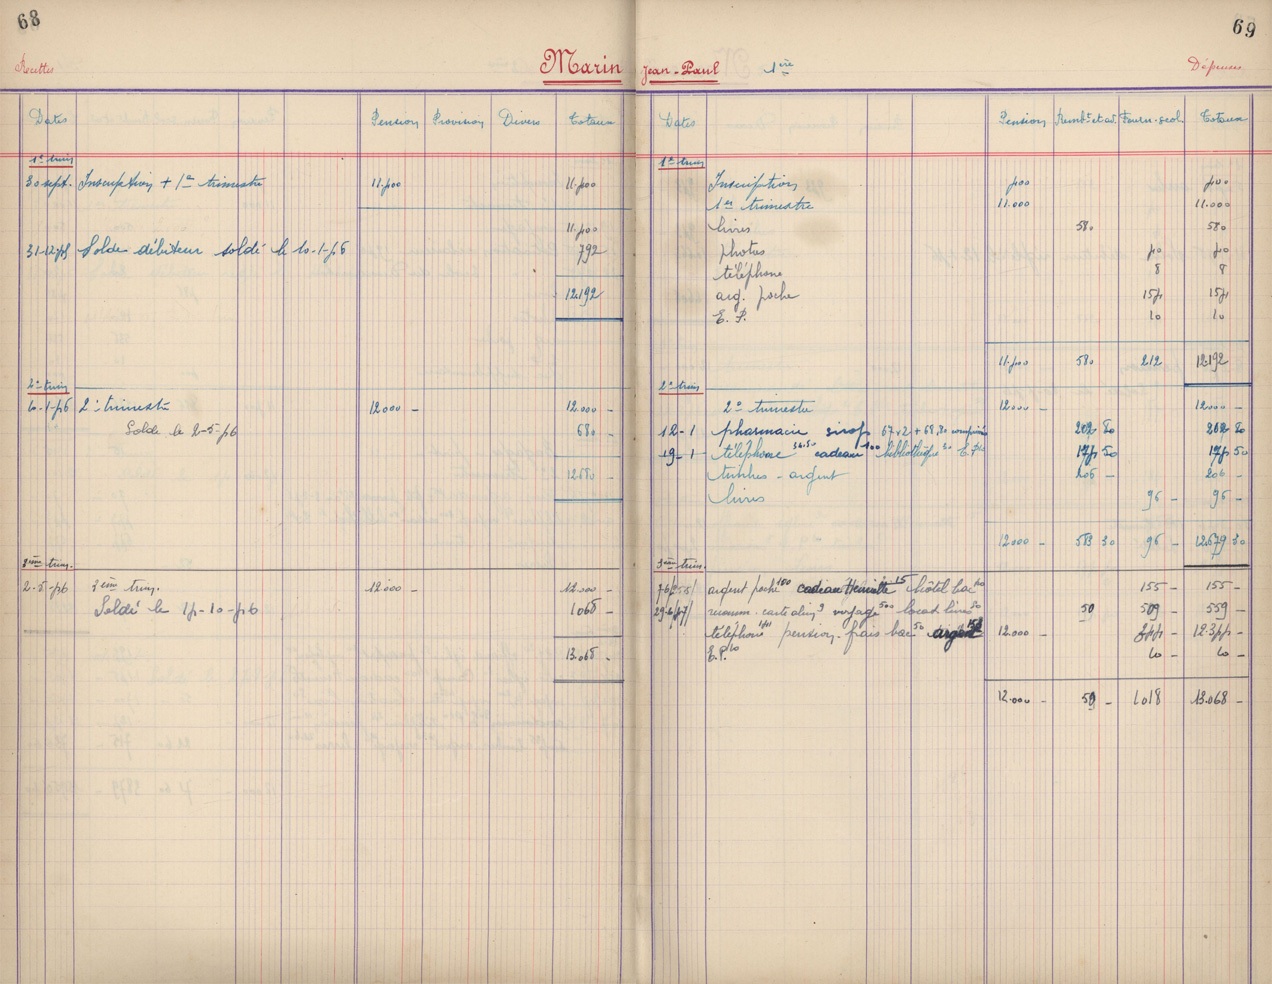 68
Recettes Marin
Dates Pension Provision Divers Totaux
1er trim
30 sept. Inscription + 1er trimestre 11.500 11.500
11.500
31-12-55 Solde débiteur soldé le 10-1-56 792
12.192
2e trim
10-1-56 2e trimestre 12000 - 12.000 -
Solde le 2-5-56 680 -
12.680 -
3ème trim.
2-5-56 3ème trim. 12.000 - 12.000 -
Soldé le 15-10-56 1068 -
13.068 -
69
Jean-Paul 1ère Dépenses
Dates Pension Fourn. scol Totaux
1er trim
Inscription 500 500
1er trimestre 11.000 11.000
livres 580 580
photos 50 50
téléphone 8 8
arg. poche
E. P. 10 10
11.500 580 212 12.192
2e trim
2e trimestre 12000 - 12000 -
12-1 pharmacie sirop 67x2 + 68,80 202 80 202 80
19-1 téléphone 36.50 cadeau 100 bibliothèque 30 E.P. 10 50 50
timbres - argent 206 - 206 -
livres 96 - 96 -
12000 - 583 30 96 - 12.679 30
3ème trim.
argent poche 100 cadeau 15 hôtel bac 155 - 155 -
voyage 500 locat livres 50 50 509 - 559 -
téléphone pension. frais bac 50 argent 12.000 - 12.355 -
E.P. 10 10 - 10 -
12.000 - 50 - 1018 13.068 -